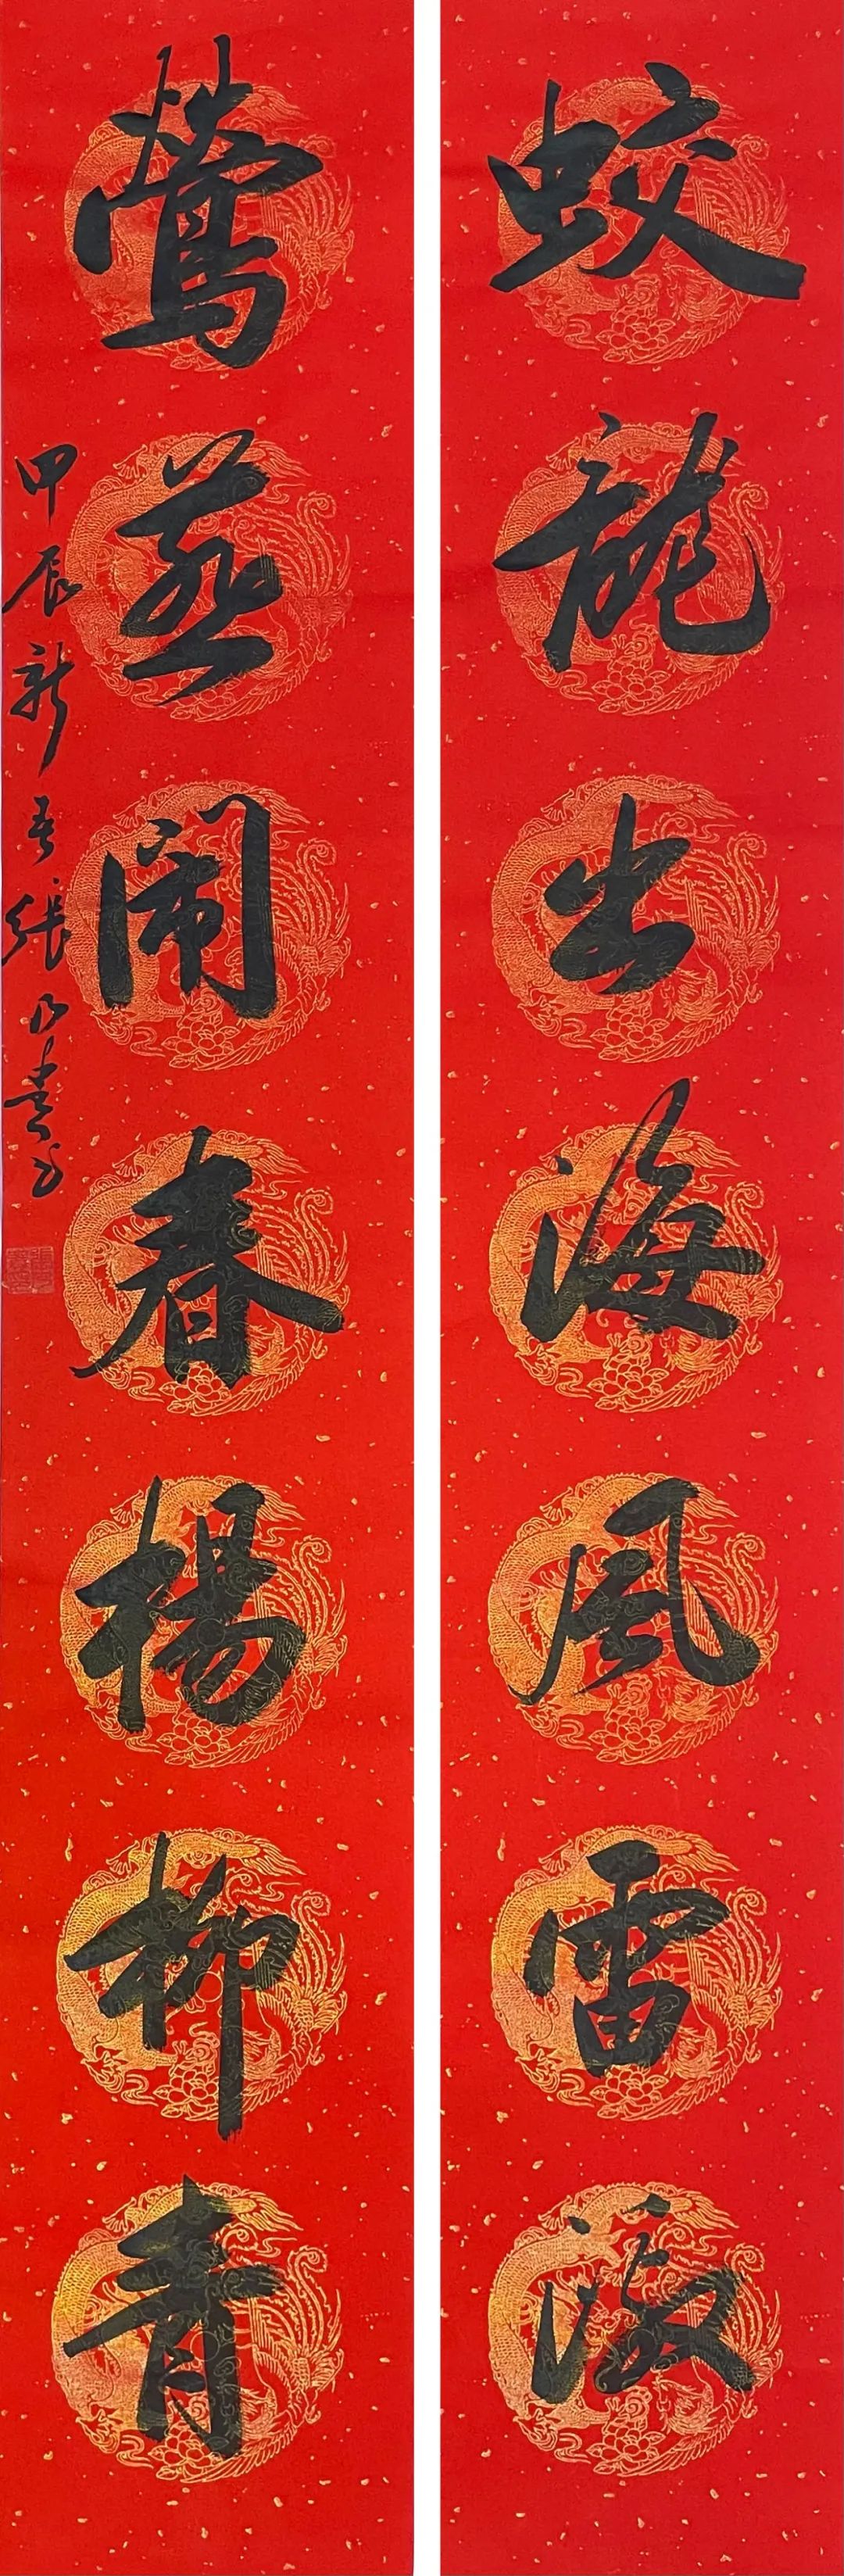 蛟龍出海風雷激
鶯燕鬧春楊柳青
甲辰新春張乃書